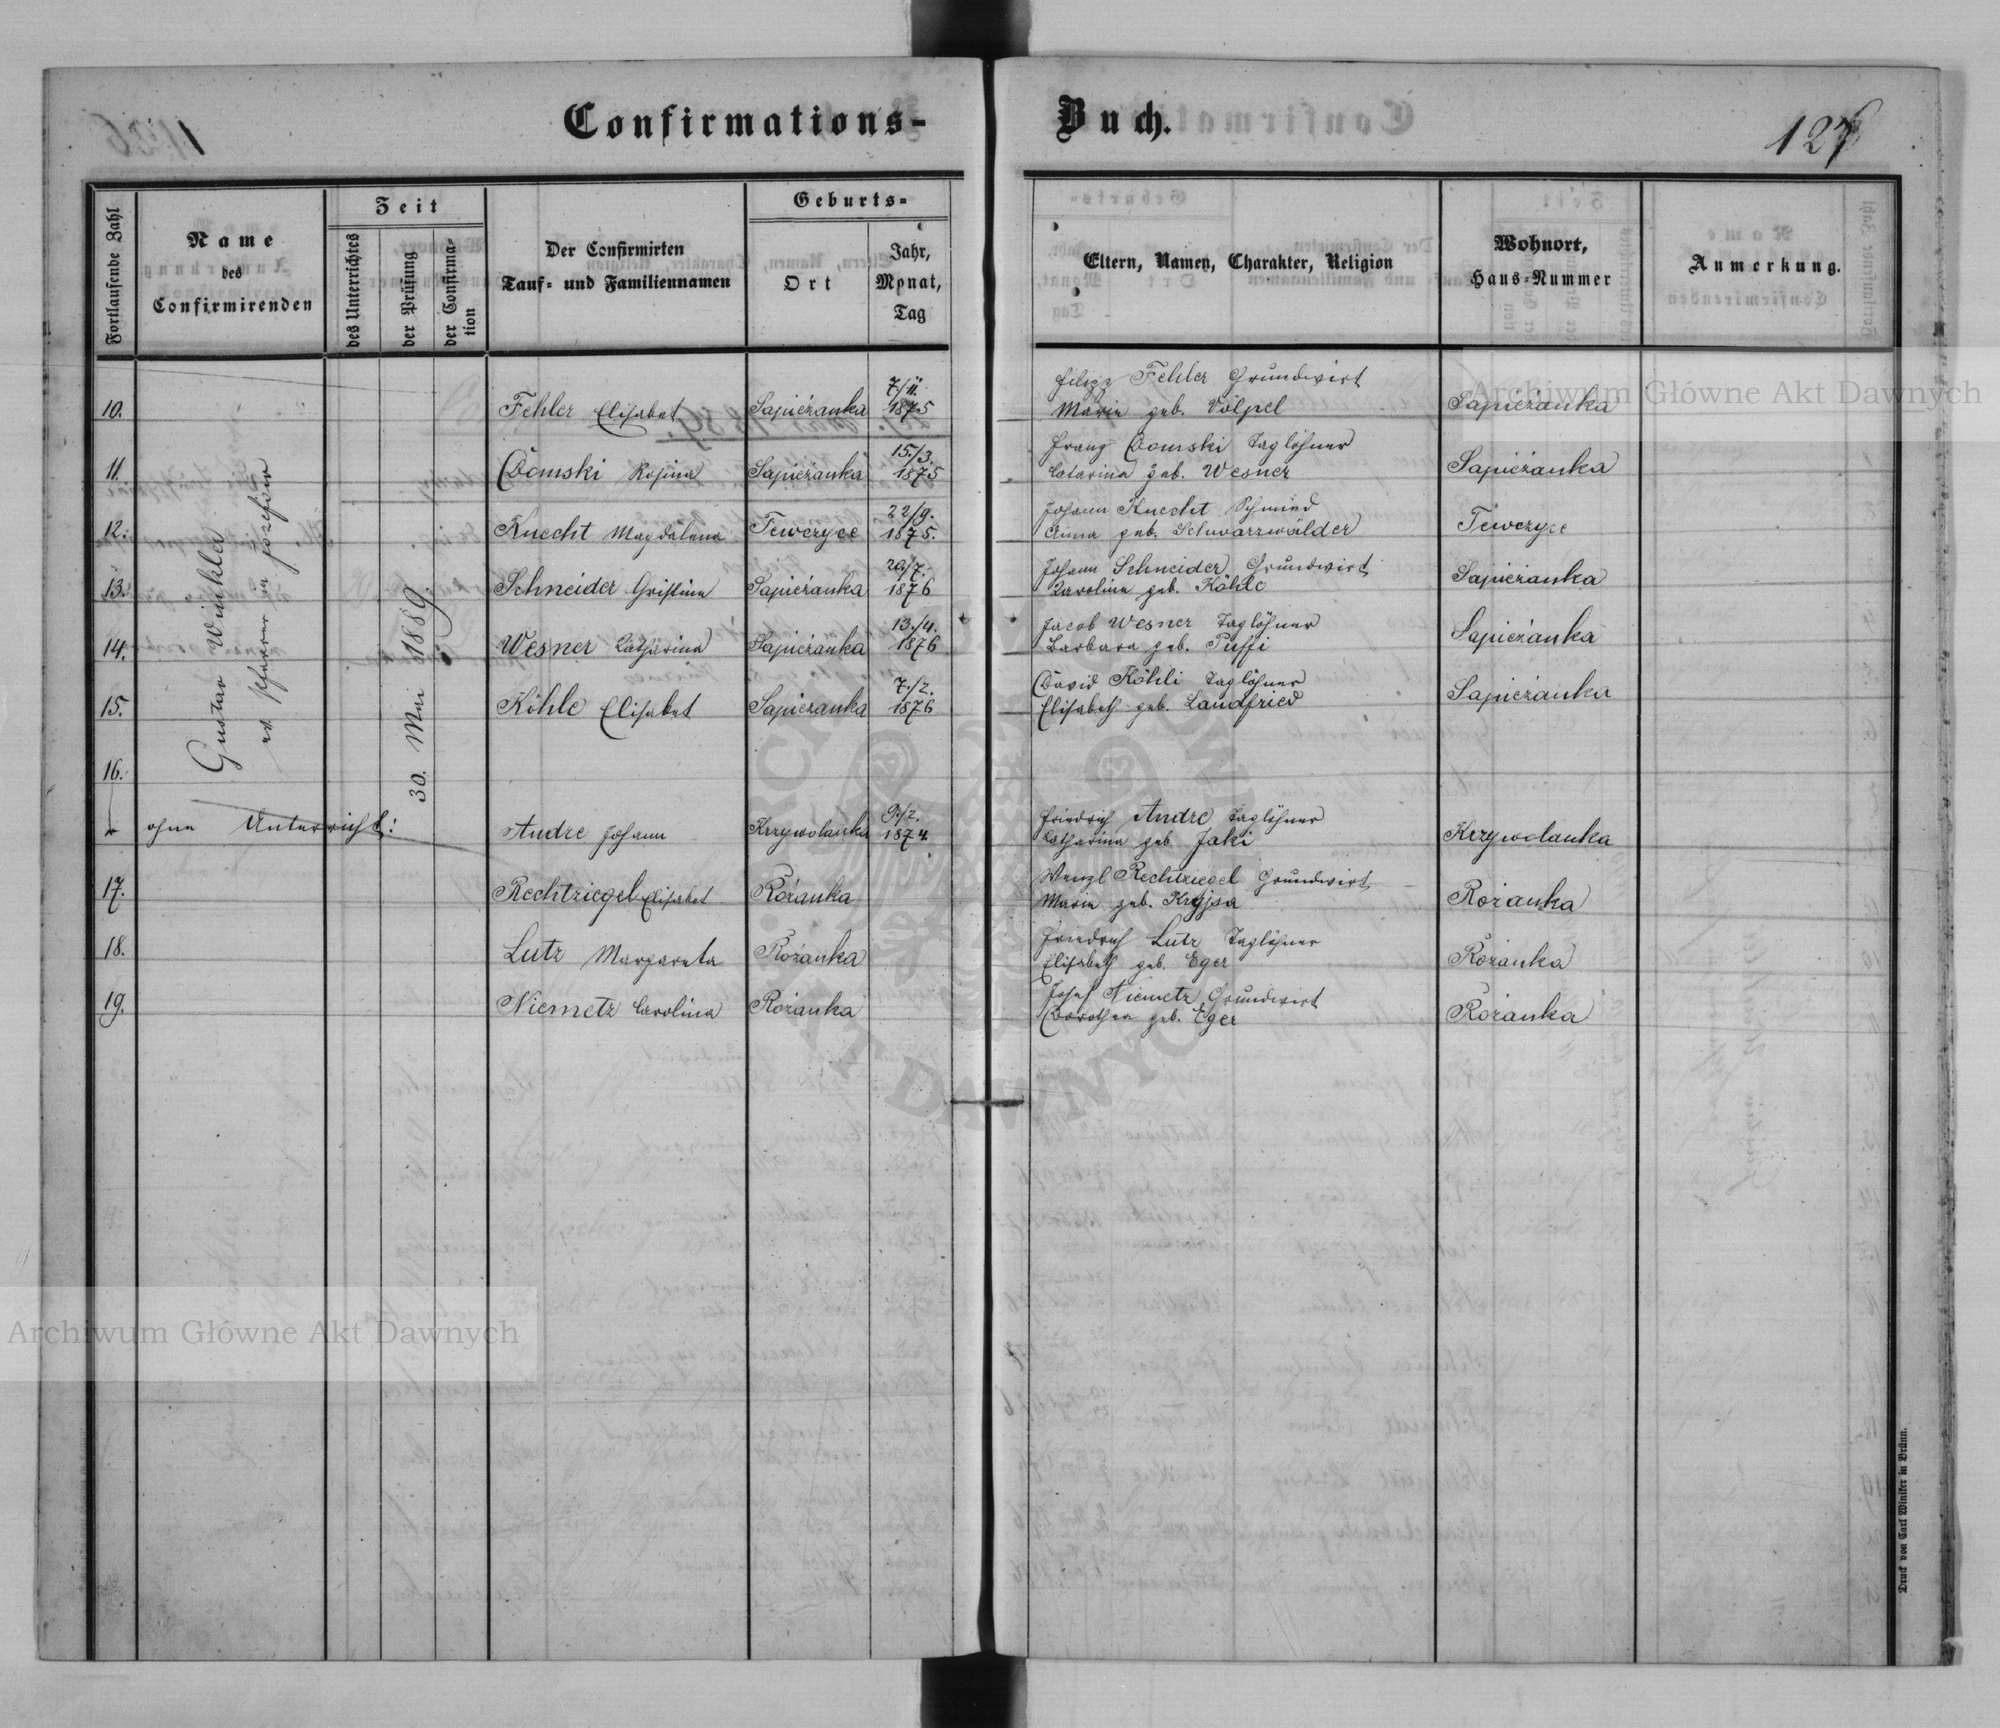 Confirmations-
Buch.
127
Fortlaufende Zahl
Name
des
Confirmirenden
Zeit
des Unterrichtes
der Prüfung
der Confirma-
tion
Der Confirmirten
Tauf- und Familiennamen
Geburts-
Ort
Jahr,
Monat,
Tag
Eltern, Namen, Charakter, Religion
Wohnort,
Haus-Nummer
Anmerkung.
Gustav Winkler
ev. Pfarrer in Josefow
30. Mai 1889.
10. Fehler Elisabet Sapieżanka 7/11. 1875
Filipp Fehler Grundwirt
Maria geb. Völpel
Sapieżanka
11. Domski Rosina Sapieżanka 15./3. 1875
Franz Domski Taglöhner
Catarina geb. Wesner
Sapieżanka
12. Knecht Magdalena Tewczyce 22/9. 1875.
Johann Knecht Schmied
Anna geb. Schwarzwälder
Tewczyce
13. Schneider Christina Sapieżanka 20/7. 1876
Johann Schneider Grundwirt
Karolina geb. Köhle
Sapieżanka
14. Wesner Catharina Sapieżanka 13./4. 1876
Jacob Wesner Taglöhner
Barbara geb. Puffi
Sapieżanka
15. Köhle Elisabet Sapieżanka 7./2. 1876
David Köhli Taglöhner
Elisabeth geb. Landfried
Sapieżanka
16.
ohne Unterricht: Andre Johann Krzywolanka 9./2. 1874.
Friedrich Andre Taglöhner
Catharina geb. Jaki
Krzywolanka
17. Rechtziegel Elisabet Rożanka
Wenzl Rechtziegel Grundwirt
Maria geb. Krejsa
Rożanka
18. Lutz Margareta Rożanka
Friedrich Lutz Taglöhner
Elisabeth geb. Eger
Rożanka
19. Niemetz Carolina Rożanka
Josef Niemetz Grundwirt
Dorothea geb. Eger
Rożanka
Druck von Carl Winiker in Brünn.
Archiwum Główne Akt Dawnych
Archiwum Główne Akt Dawnych